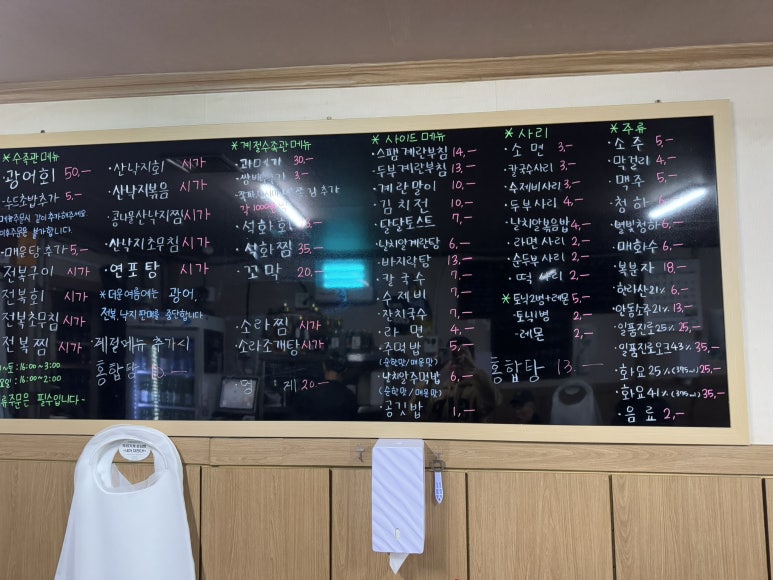 *수족관 메뉴
·광어회 50,-
·누드초밥추가 5,-
·매운탕 추가 5,-
전복구이 시가
전복회 시가
전복초무침 시가
전복찜 시가
:16:00~3:00
:16:00~2:00
류주문은 필수입니다~
·산낙지회 시가
·산낙지볶음 시가
·콩나물산낙지찜 시가
·산낙지초무침 시가
·연포탕 시가
*더운여름에는 광어,
전복,낙지 판매를 중단합니다
·계절메뉴 추가시
홍합탕
*계절수족관 메뉴
·과메기 30,-
추가
·석화회
·석화찜 35,-
·꼬막 20,-
·소라찜 시가
·소라조개탕 시가
20,-
*사이드 메뉴
·스팸계란부침 14,-
·두부계란부침 13,-
·계란말이 10,-
·김치전 10,-
·달달토스트 7,-
·날치알계란탕 6,-
·바지락탕 13,-
·칼국수 7,-
·수제비 7,-
·잔치국수 7,-
·라면 4,-
·주먹밥 5,-
(순한맛/매운맛)
·날치알주먹밥 6,-
(순한맛/매운맛)
·공깃밥 1,-
*사리
·소면 3,-
·칼국수사리 3,-
·수제비사리 3,-
·두부사리 4,-
·날치알볶음밥 4,-
·라면사리 2,-
·순두부사리 2,-
·떡사리 2,-
*토닉2병+레몬 5,-
·토닉1병 2,-
·레몬 2,-
홍합탕 13,-
*주류
·소주 5,-
·막걸리 4,-
·맥주 5,-
·청하 6,-
·별빛청하 6,-
·매화수 6,-
·복분자 18,-
·한라산21% 6,-
·안동소주21% 13,-
·일품진로25% 25,-
·일품진로오크43% 35,-
·화요25%(375㎖) 25,-
·화요41%(375㎖) 35,-
·음료 2,-